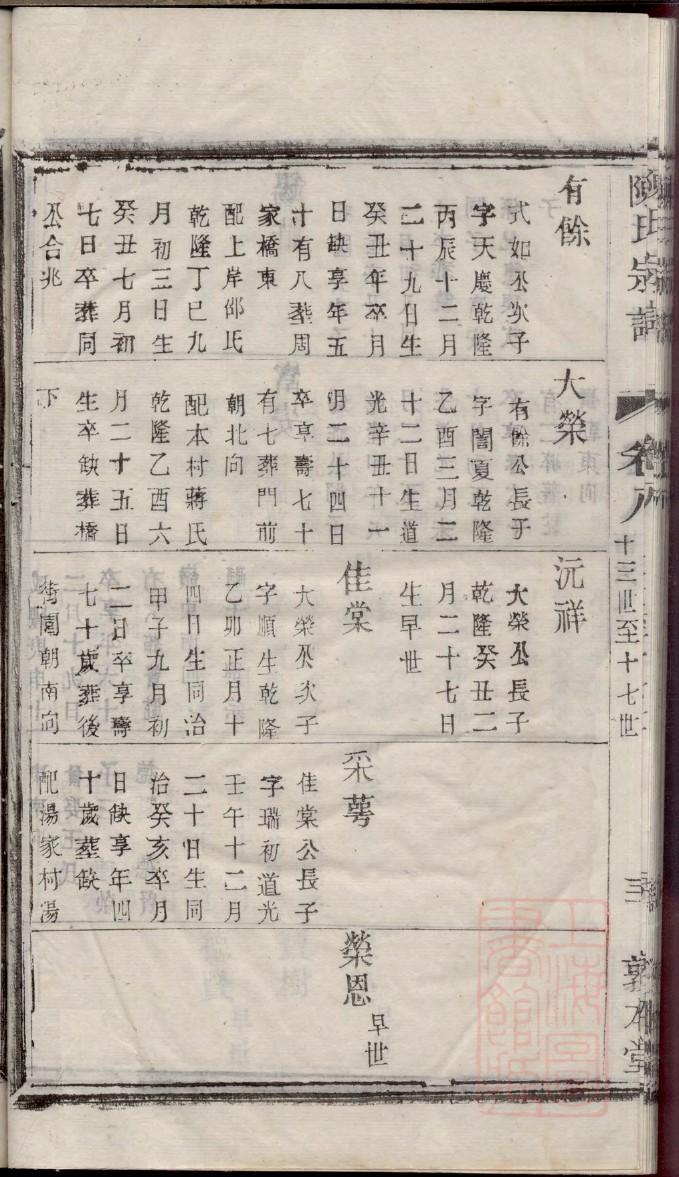 有餘
式如公次子
字天慶乾隆
丙辰十二月
二十九日生
癸丑年卒月
日缺享年五
十有八葬周
家橋東
配上岸邵氏
乾隆丁巳九
月初三日生
癸丑七月初
七日卒葬同
公合兆
大榮
有餘公長子
字闇夏乾隆
乙酉三月二
十二日生道
光辛丑十一
月二十四日
卒享壽七十
有七葬門前
朝北向
配本村蔣氏
乾隆乙酉六
月二十五日
生卒缺葬橋
下
沅祥
大榮公長子
乾隆癸丑二
月二十七日
生早世
佳棠
大榮公次子
字順生乾隆
乙卯正月十
四日生同治
甲子九月初
二日卒享壽
七十歲葬後
街園朝南向
采蕚
佳棠公長子
字瑞初道光
壬午十二月
二十日生同
治癸亥卒月
日缺享年四
十歲葬缺
配湯家村湯
榮恩
早世
陳氏宗譜
卷八
十三世至十七世
三
敦本堂
上海圖書館藏